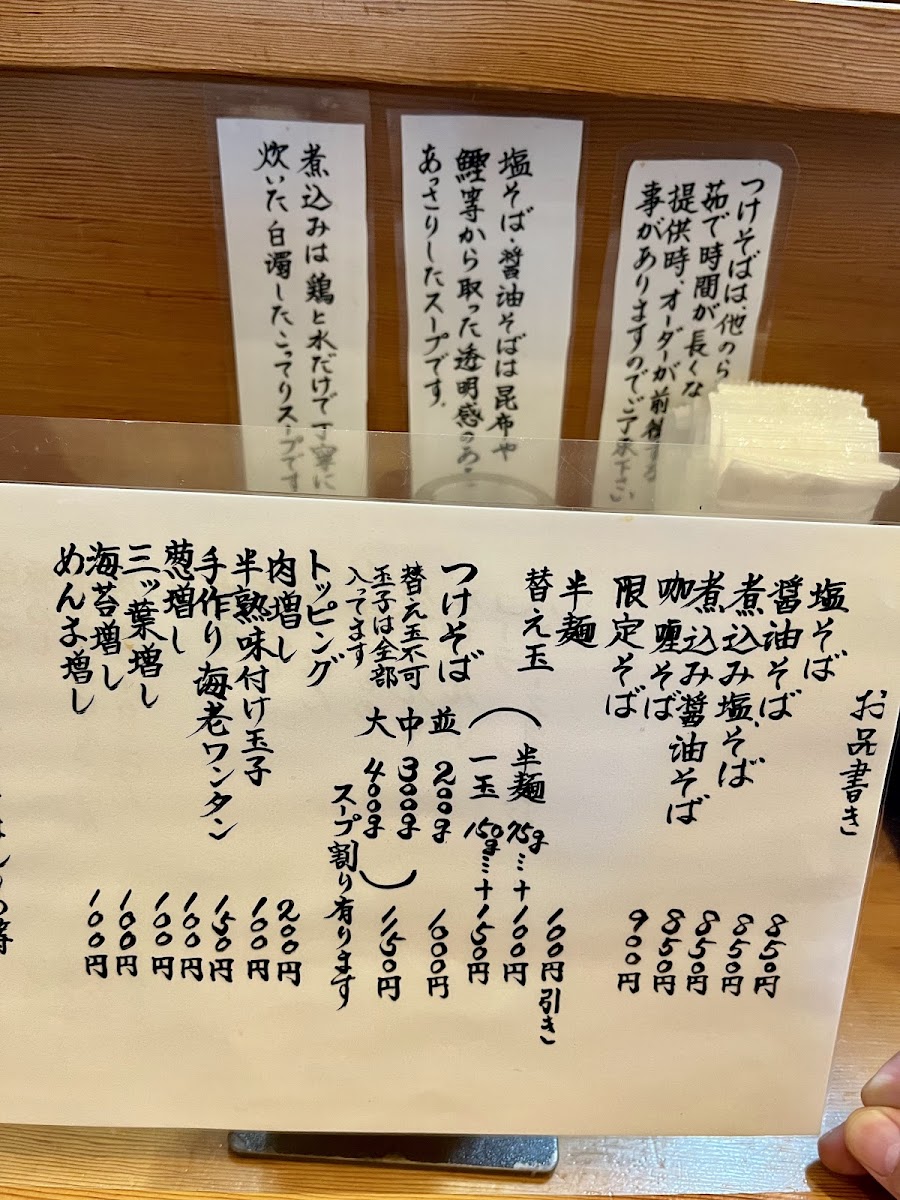 つけそばは、他のら
茹で時間が長くな
提供時、オーダーが前後する
事がありますのでご了承下さい
塩そば・醤油そばは昆布や
鰹等から取った透明感のあ
あっさりしたスープです。
煮込みは鶏と水だけで丁寧に
炊いた白濁したこってりスープです
お品書き
塩そば
醤油そば 850円
煮込み塩そば 850円
煮込み醤油そば 850円
咖喱そば 850円
限定そば 900円
半麺 100円引き
替え玉 (半麺 75g…+100円
一玉 150g…+150円
つけそば 並 200g 1000円
替え玉不可 中 300g
玉子は全部 大 400g) 1150円
入ってます スープ割り有ります
トッピング
肉増し 200円
半熟味付け玉子 100円
手作り海老ワンタン 150円
葱増し 100円
三ッ葉増し 100円
海苔増し 100円
めんま増し 100円